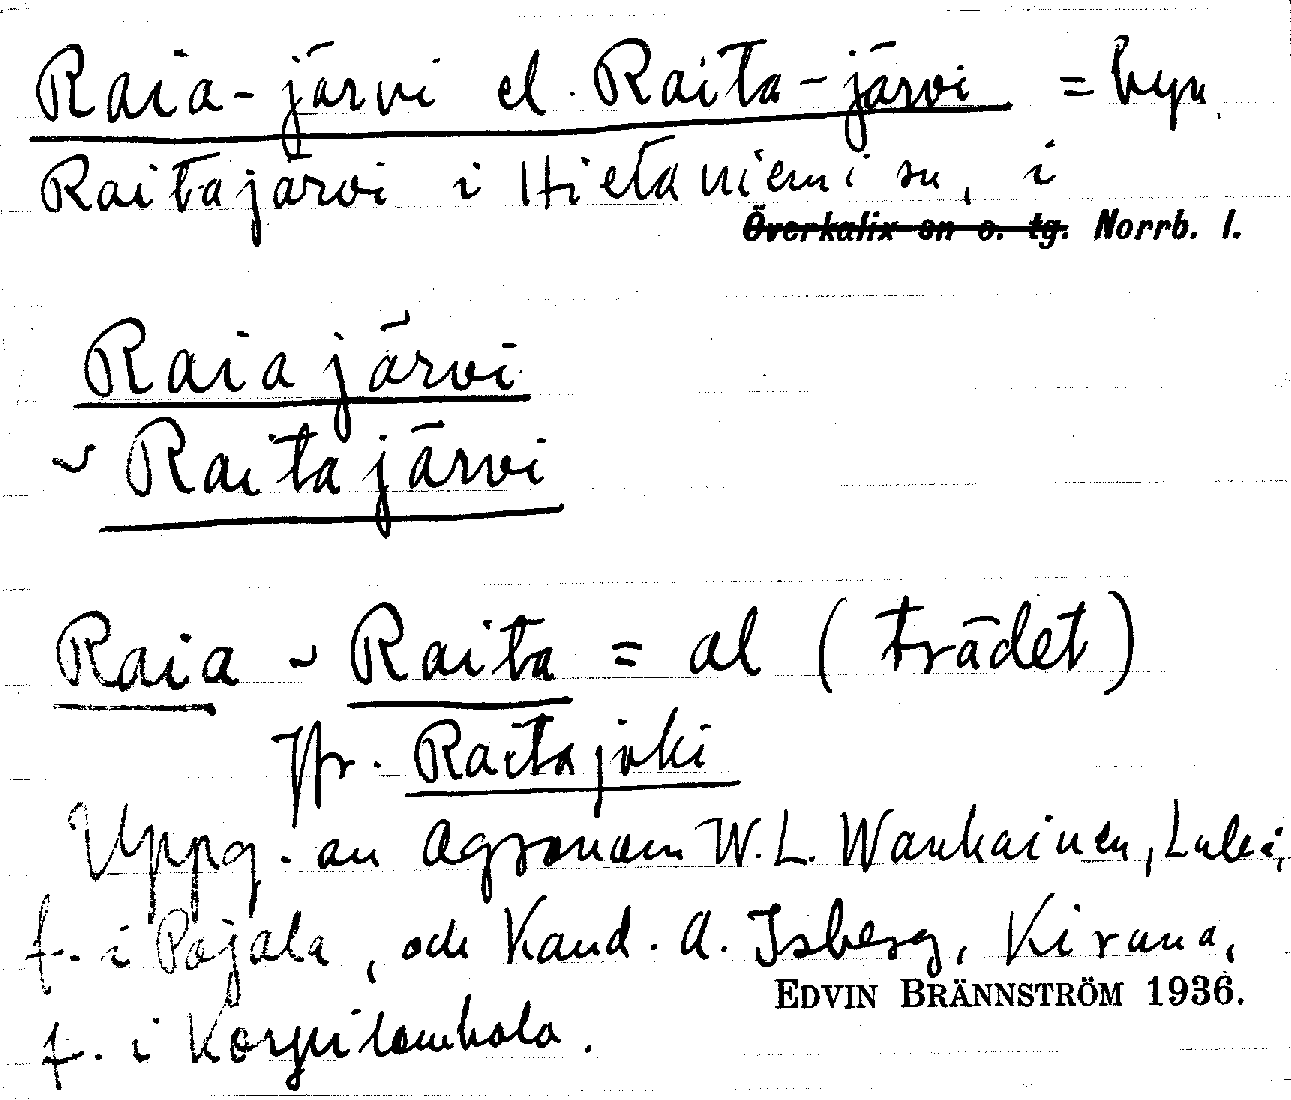 Raia-järvi el. Raita-järvi = byn
Raitajärvi i Hietaniemi sn, i
Överkalix sn o. tg. Norrb. l.
Raiajärvi
~ Raitajärvi
Raia ~ Raita = al (trädet)
Jfr. Raitajoki
Uppg. av Agronom W.L. Wanhainen, Luleå,
f. i Pajala, och Kand. A. Isberg, Kiruna,
EDVIN BRÄNNSTRÖM 1936.
f. i Korpilombolo.